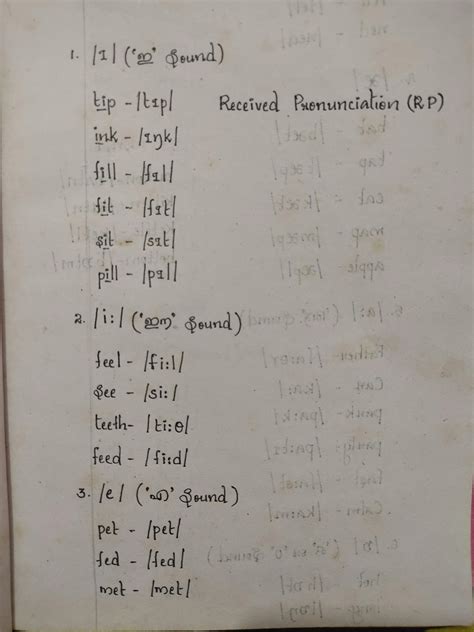 1. /ɪ/ ('ഇ' Sound)
tip - /tɪp/ Received Pronunciation (RP)
ink - /ɪŋk/
fill - /fɪl/
fit - /fɪt/
sit - /sɪt/
pill - /pɪl/
2. /i:/ ('ഈ' Sound)
feel - /fi:l/
See - /si:/
teeth - /ti:θ/
feed - /fi:d/
3. /e/ ('എ' Sound)
pet - /pet/
fed - /fed/
met - /met/